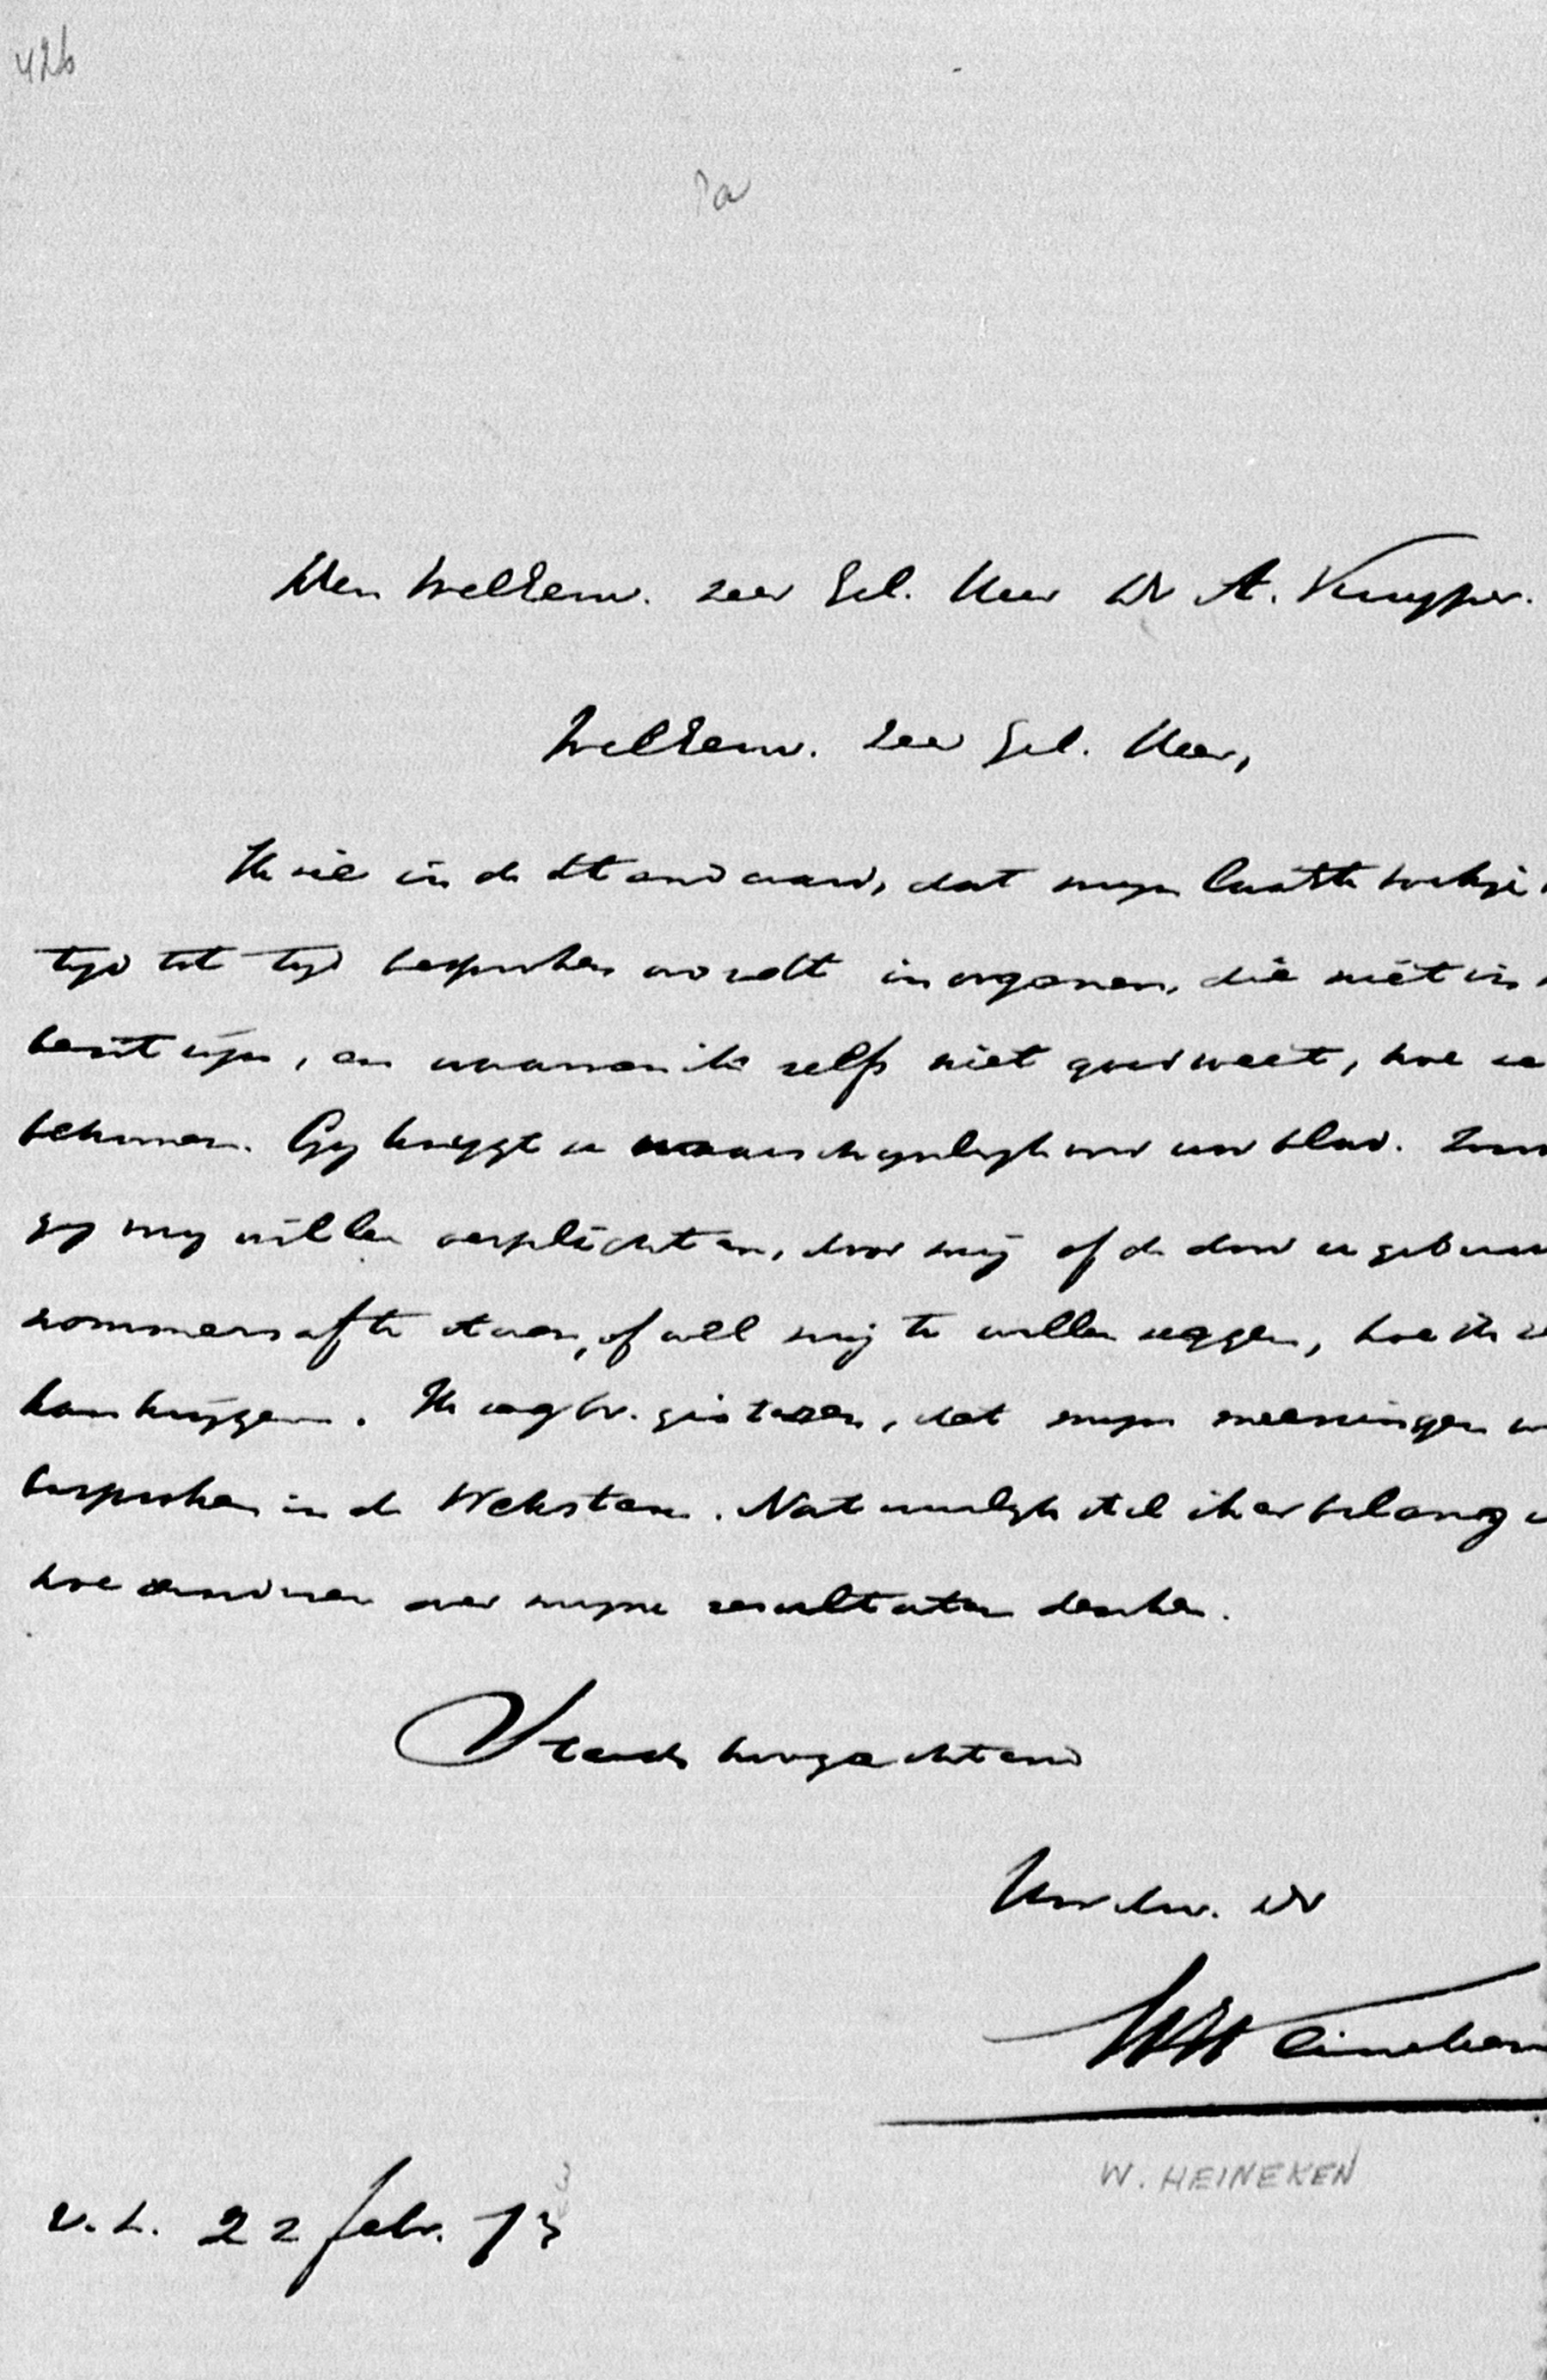 426
Den WelEerw. zeer Gel. Heer Dr A. Kuyper.
WelEerw. zeer Gel. Heer,
Ik zie in de Standaard, dat mijn laatste boekje
tyd tot tyd besproken wordt in organen, die niet in
bezit zijn, en waarvan ik zelfs niet goed weet, hoe ze
bekomen. Gy krijgt ze waarschynlyk voor uw blad. Zou
gy my willen verplichten, door mij of de door u gebru
nommers af te staan, of wel mij te willen zeggen, hoe ik z
kan krijgen. Ik zag bv. gisteren, dat mijn meeningen w
besproken in de Wekstem. Natuurlyk stel ik er belang i
hoe anderen over mijne resultaten denken.
Steeds hoogachtend
Uw dw. Dr
W Heineken
W. HEINEKEN
v. h. 22 febr. 73